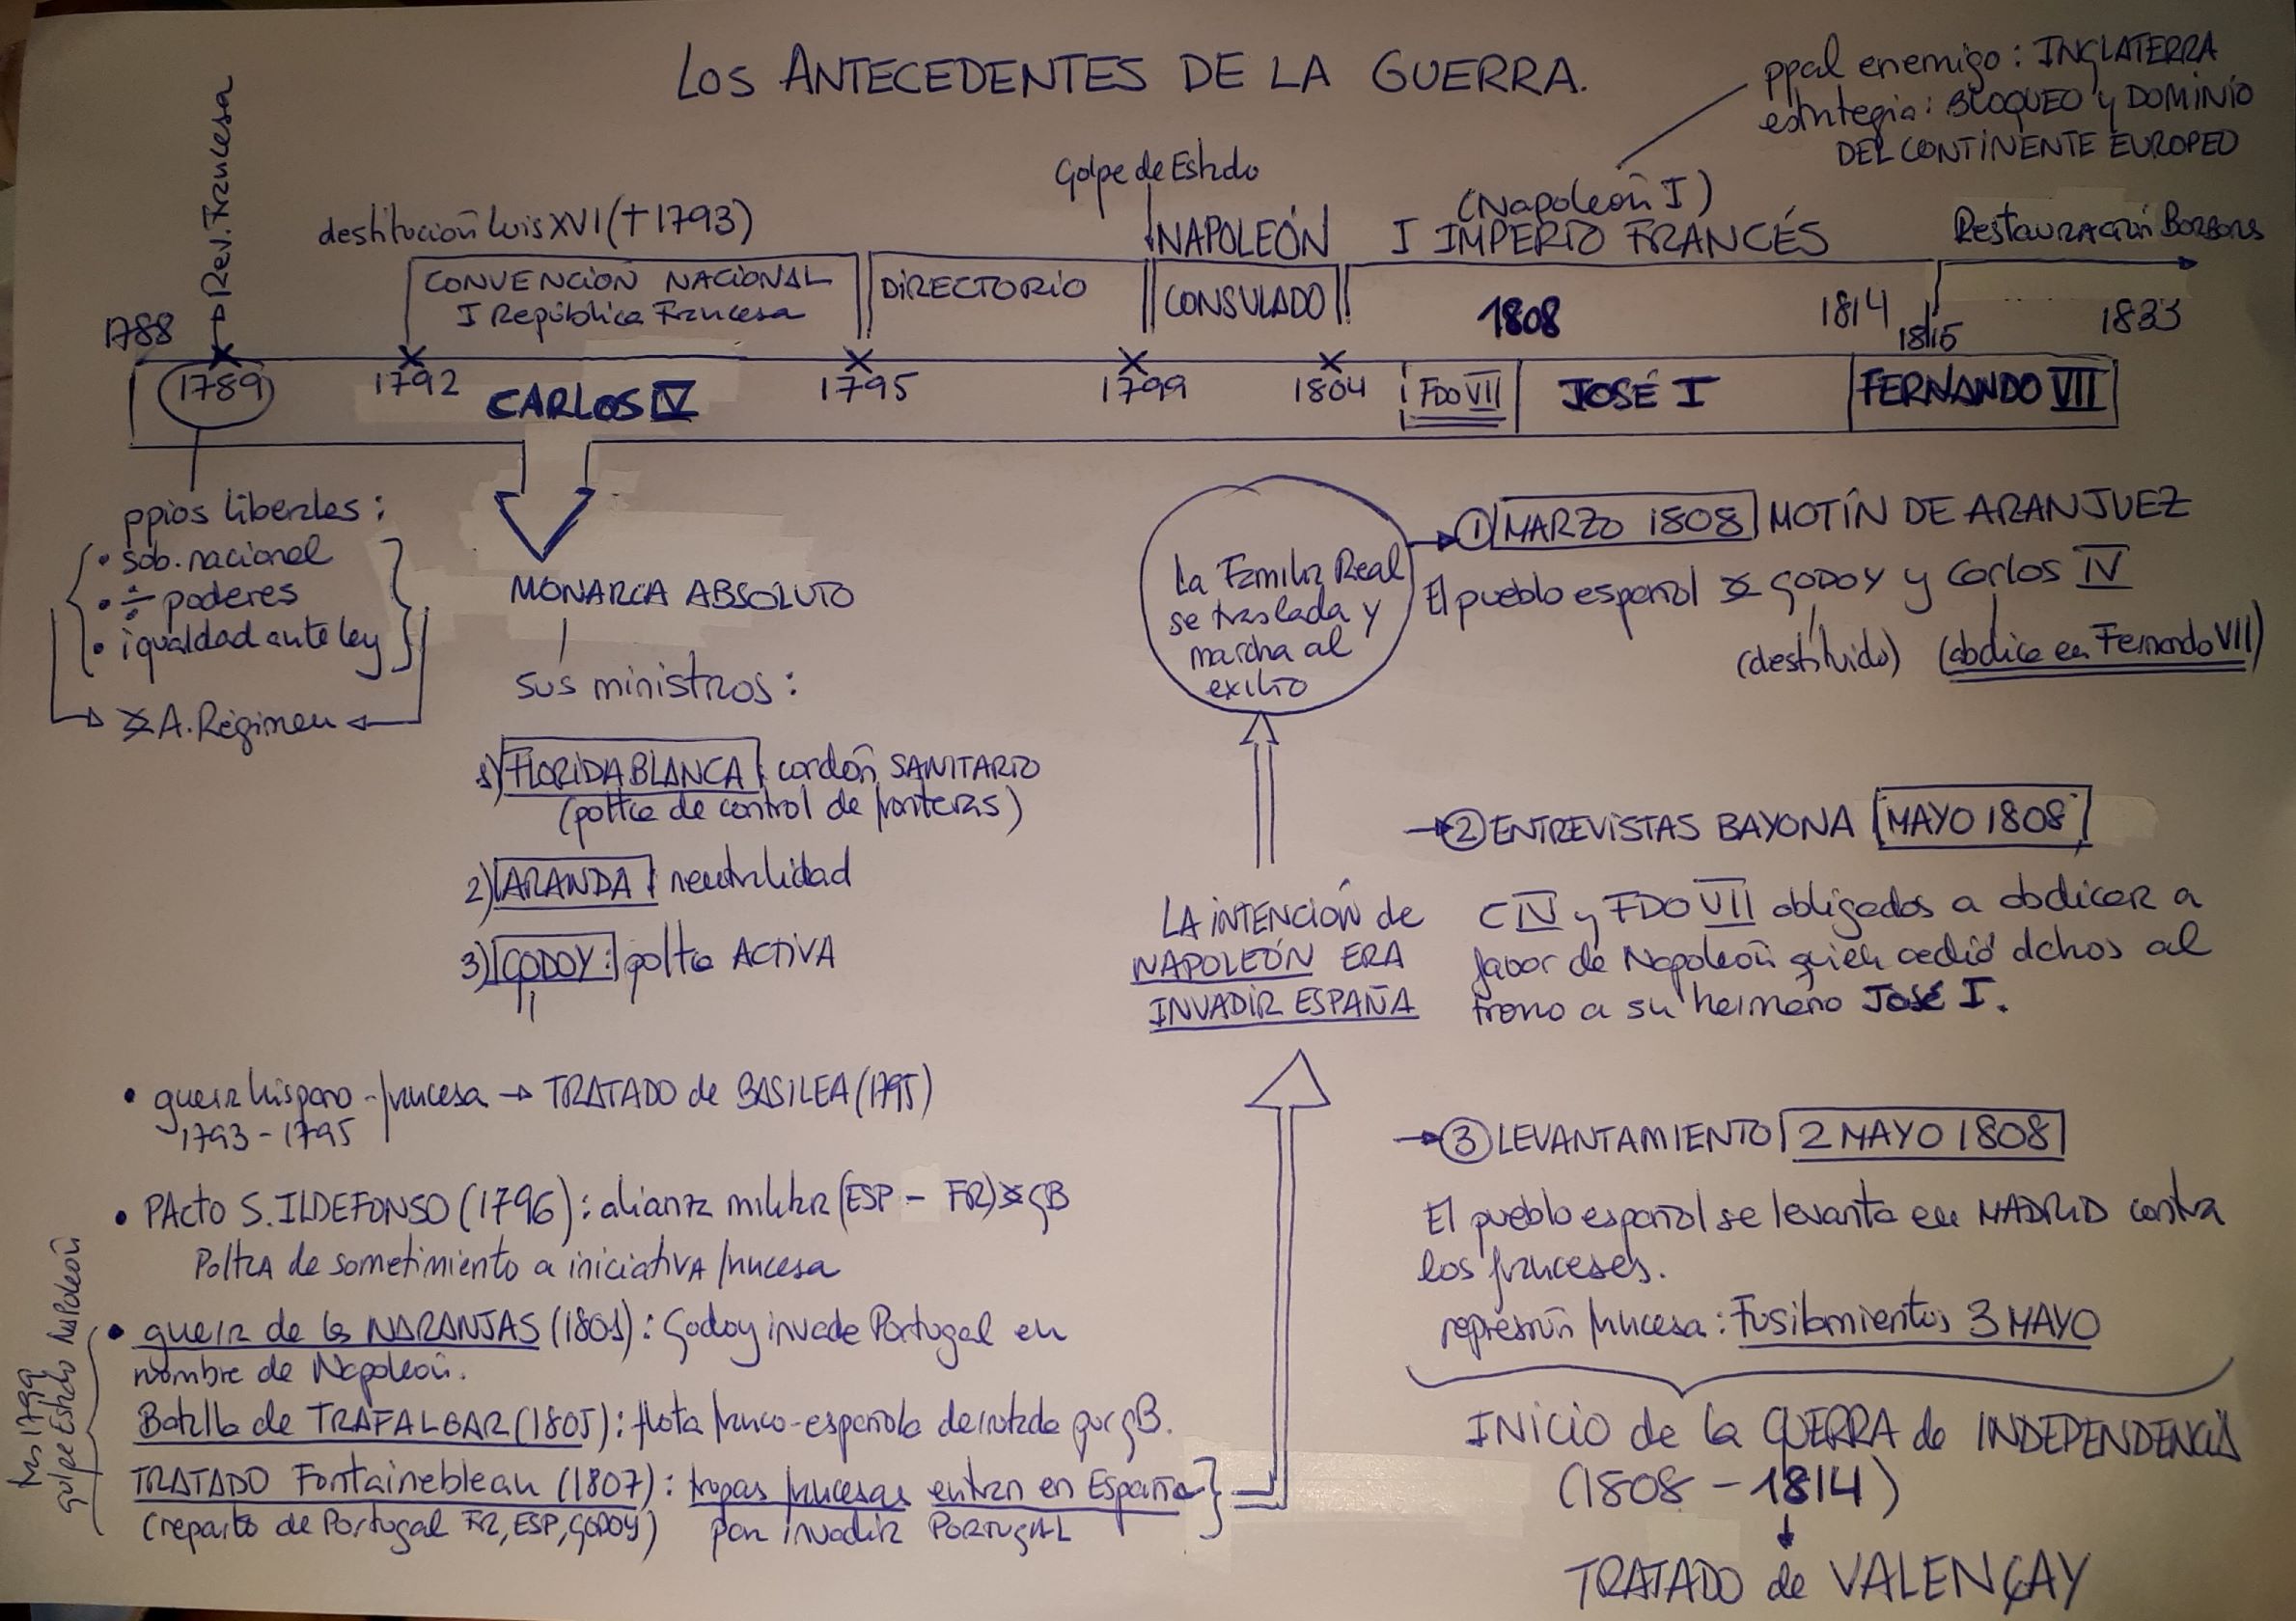 LOS ANTECEDENTES DE LA GUERRA.
ppal enemigo: INGLATERRA
estrategia: BLOQUEO y DOMINIO
DEL CONTINENTE EUROPEO
Rev. Francesa
Golpe de Estado
destitución Luis XVI († 1793)
(Napoleón I)
NAPOLEÓN
I IMPERIO FRANCÉS
Restauración Borbones
CONVENCIÓN NACIONAL
I República Francesa
DIRECTORIO
CONSULADO
1788
1808
1814
1815
1833
1789
1792
CARLOS IV
1795
1799
1804
FDO VII
JOSÉ I
FERNANDO VII
ppios liberales:
• sob. nacional
• ÷ poderes
• igualdad ante ley
A. Régimen
MONARCA ABSOLUTO
sus ministros:
1) FLORIDABLANCA: cordón SANITARIO
(poltca de control de fronteras)
2) ARANDA: neutralidad
3) GODOY: poltca ACTIVA
• guerra hispano-francesa → TRATADO de BASILEA (1795)
1793-1795
• PActo S. ILDEFONSO (1796): alianza militar (ESP - FR) GB
PoltcA de sometimiento a iniciativA francesa
• guerra de las NARANJAS (1801): Godoy invade Portugal en
nombre de Napoleón.
Batalla de TRAFALGAR (1805): flota franco-española derrotada por GB.
TRATADO Fontainebleau (1807): tropas francesas entran en España
(reparto de Portugal FR, ESP, GODOY) para invadir PORTUGAL
tras 1799
golpe Estado Napoleón
La Familia Real
se traslada y
marcha al
exilio
LA INTENCIÓN de
NAPOLEÓN ERA
INVADIR ESPAÑA
→ ① MARZO 1808 MOTÍN DE ARANJUEZ
El pueblo español GODOY y Carlos IV
(destituido) (abdica en Fernando VII)
→ ② ENTREVISTAS BAYONA MAYO 1808
C IV y FDO VII obligados a abdicar a
favor de Napoleón quien cedió dchos al
trono a su hermano José I.
→ ③ LEVANTAMIENTO 2 MAYO 1808
El pueblo español se levanta en MADRID contra
los franceses.
represión francesa: Fusilamientos 3 MAYO
INICIO de la GUERRA de INDEPENDENCIA
(1808 - 1814)
TRATADO de VALENÇAY